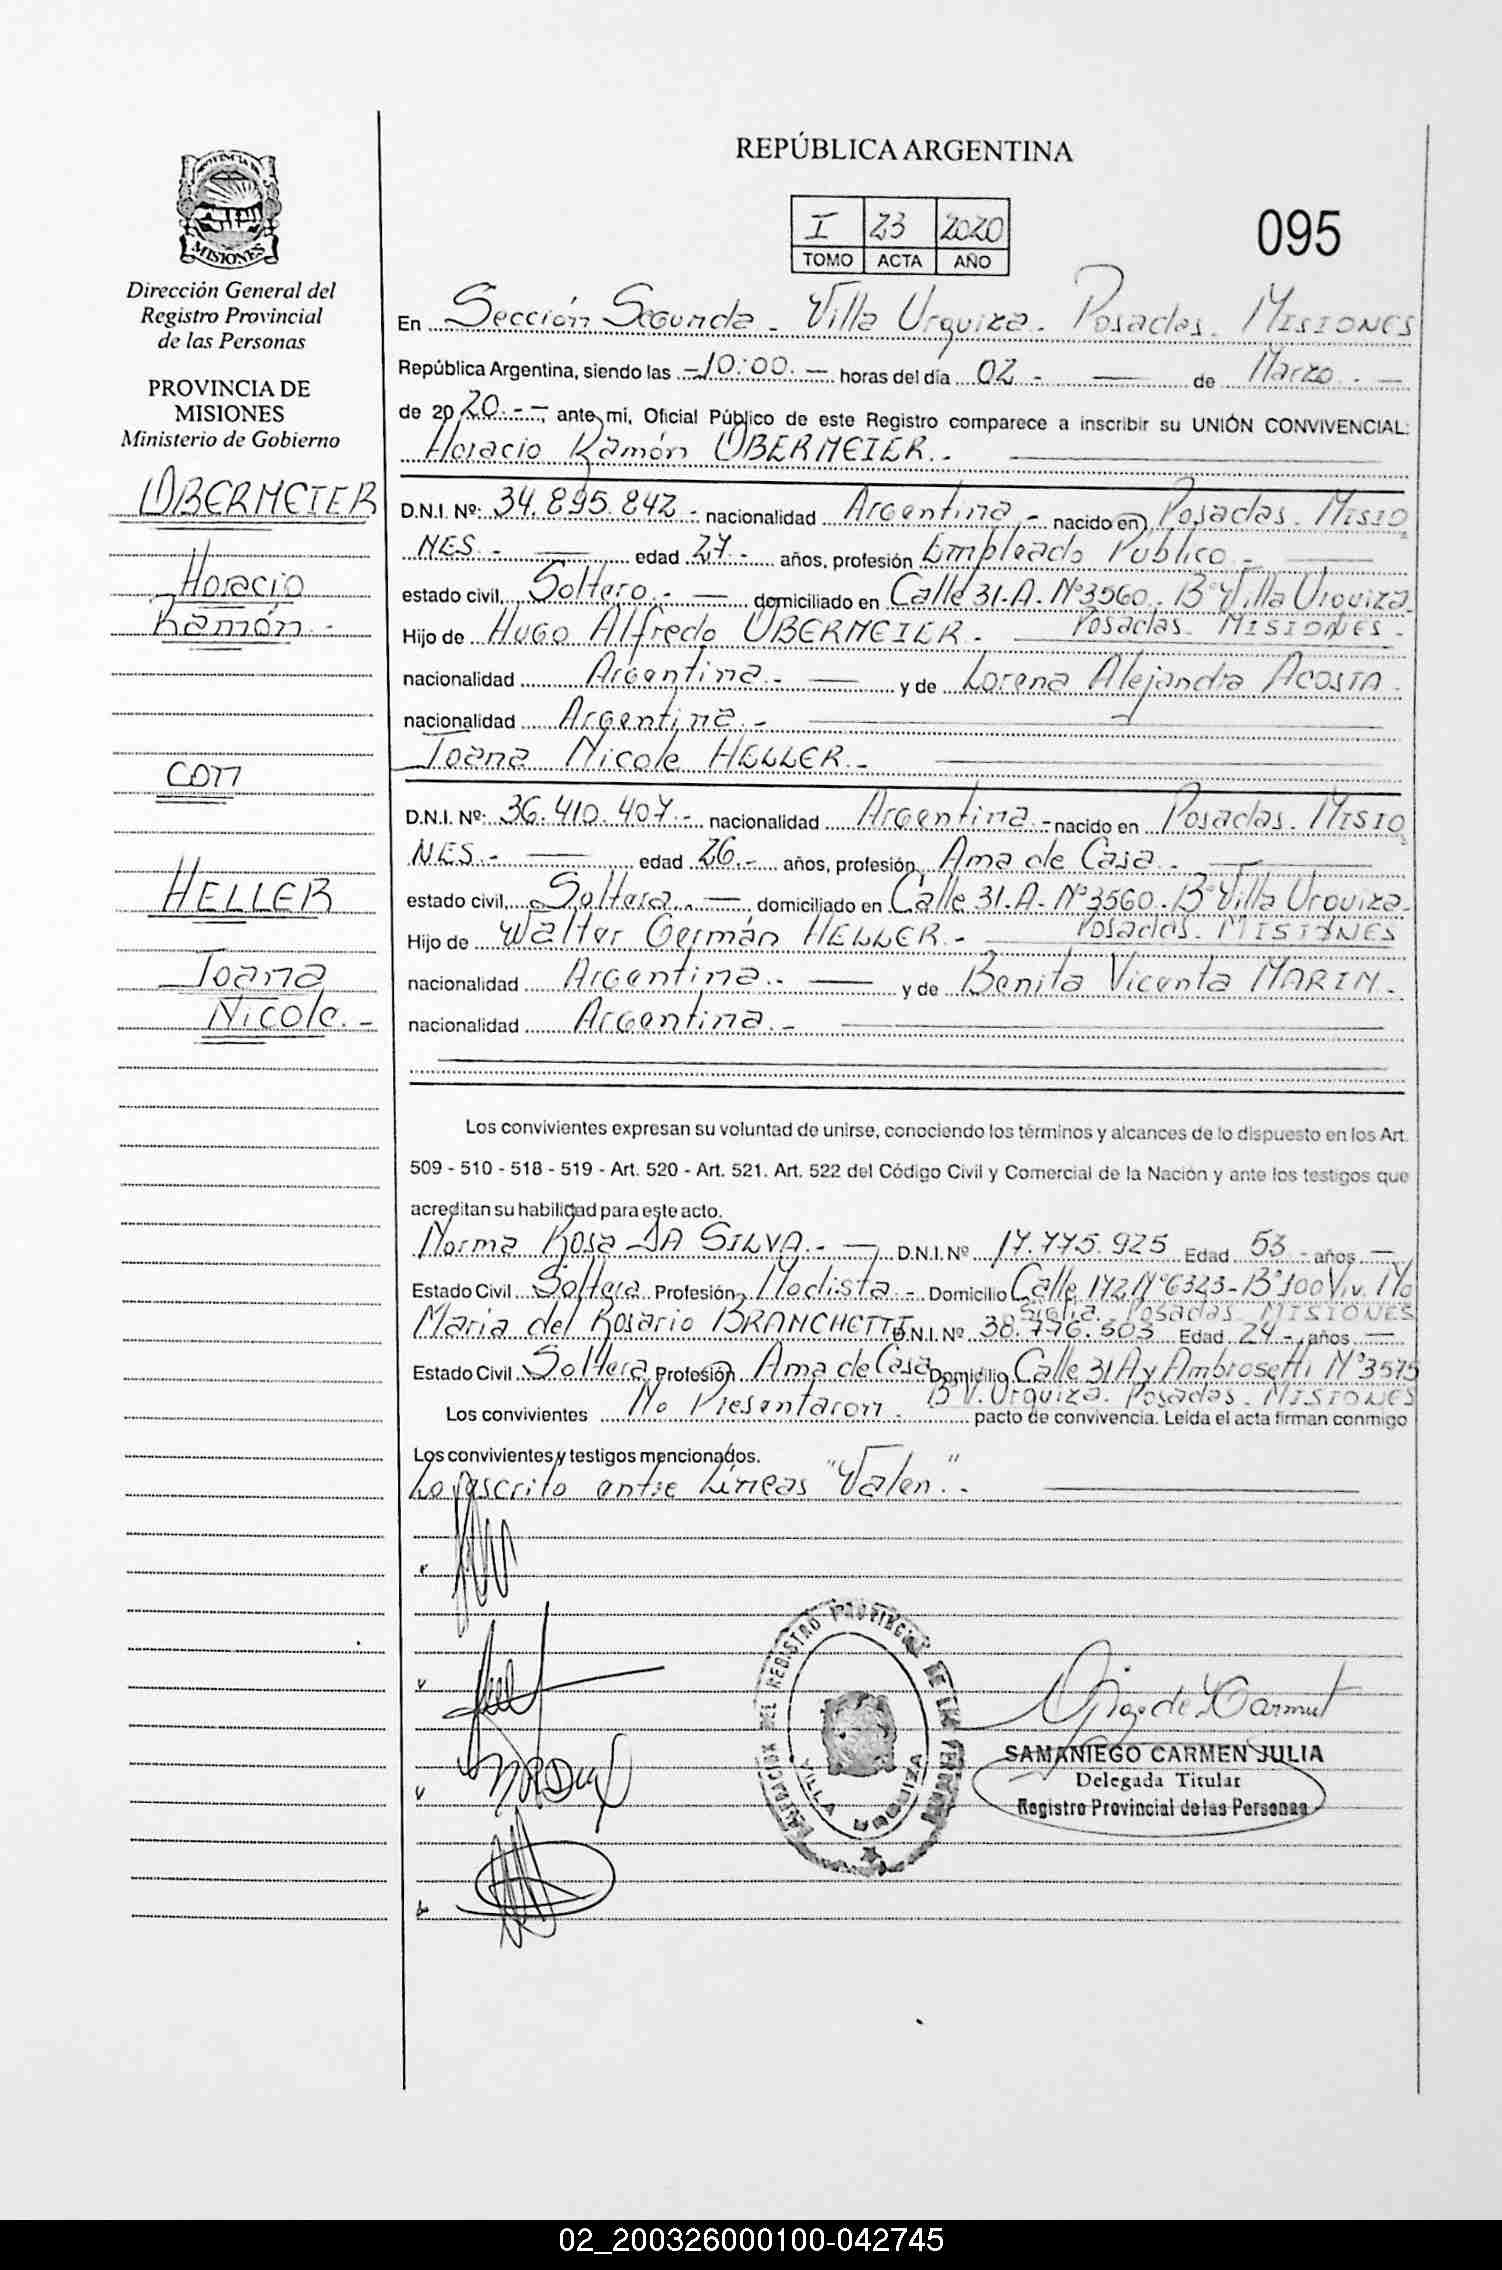 PROVINCIA DE
MISIONES
Dirección General del
Registro Provincial
de las Personas
PROVINCIA DE
MISIONES
Ministerio de Gobierno
OBERMEIER
Horacio
Ramón.-
con
HELLER
Joana
Nicole.-
REPÚBLICA ARGENTINA
I 23 2020
TOMO ACTA AÑO
095
En Sección Segunda - Villa Urquiza - Posadas - MISIONES
República Argentina, siendo las - 10:00. - horas del día 02 - de Marzo. -
de 20 20.- -, ante mi, Oficial Público de este Registro comparece a inscribir su UNIÓN CONVIVENCIAL:
Horacio Ramón OBERMEIER.-
D.N.I. Nº: 34.895.842 - nacionalidad Argentina.- nacido en Posadas. MISIO
NES.- edad 27.- años, profesión Empleado Público.-
estado civil Soltero.- domiciliado en Calle 31-A-Nº3560-Bº Villa Urquiza.
Hijo de Hugo Alfredo OBERMEIER.- Posadas. MISIONES.-
nacionalidad Argentina.- y de Lorena Alejandra ACOSTA.
nacionalidad Argentina.-
Joana Nicole HELLER.-
D.N.I. Nº: 36.410.407.- nacionalidad Argentina.- nacido en Posadas. MISIO
NES.- edad 26.- años, profesión Ama de Casa.-
estado civil Soltera.- domiciliado en Calle 31-A-Nº3560-Bº Villa Urquiza.
Hijo de Walter Germán HELLER.- Posadas. MISIONES
nacionalidad Argentina.- y de Benita Vicenta MARIN.-
nacionalidad Argentina.-
Los convivientes expresan su voluntad de unirse, conociendo los términos y alcances de lo dispuesto en los Art.
509 - 510 - 518 - 519 - Art. 520 - Art. 521. Art. 522 del Código Civil y Comercial de la Nación y ante los testigos que
acreditan su habilidad para este acto.
Norma Rosa DA SILVA.- D.N.I. Nº 17.775.925 Edad 53 - años -
Estado Civil Soltera Profesión Modista - Domicilio Calle 172 Nº6323-Bº100 Viv.
Posadas MISIONES
Maria del Rosario BRANCHETTI D.N.I. Nº 38.776.503 Edad 24 - años -
Estado Civil Soltera Profesión Ama de Casa Domicilio Calle 31A y Ambrosetti Nº3575
Bº V. Urquiza. Posadas. MISIONES
Los convivientes No Presentaron. pacto de convivencia. Leída el acta firman conmigo
Los convivientes y testigos mencionados.
Lo escrito entre Líneas "Valen".-
DELEGACION DEL REGISTRO PROVINCIAL DE LAS PERSONAS
VILLA URQUIZA
SAMANIEGO CARMEN JULIA
Delegada Titular
Registro Provincial de las Personas
02_200326000100-042745